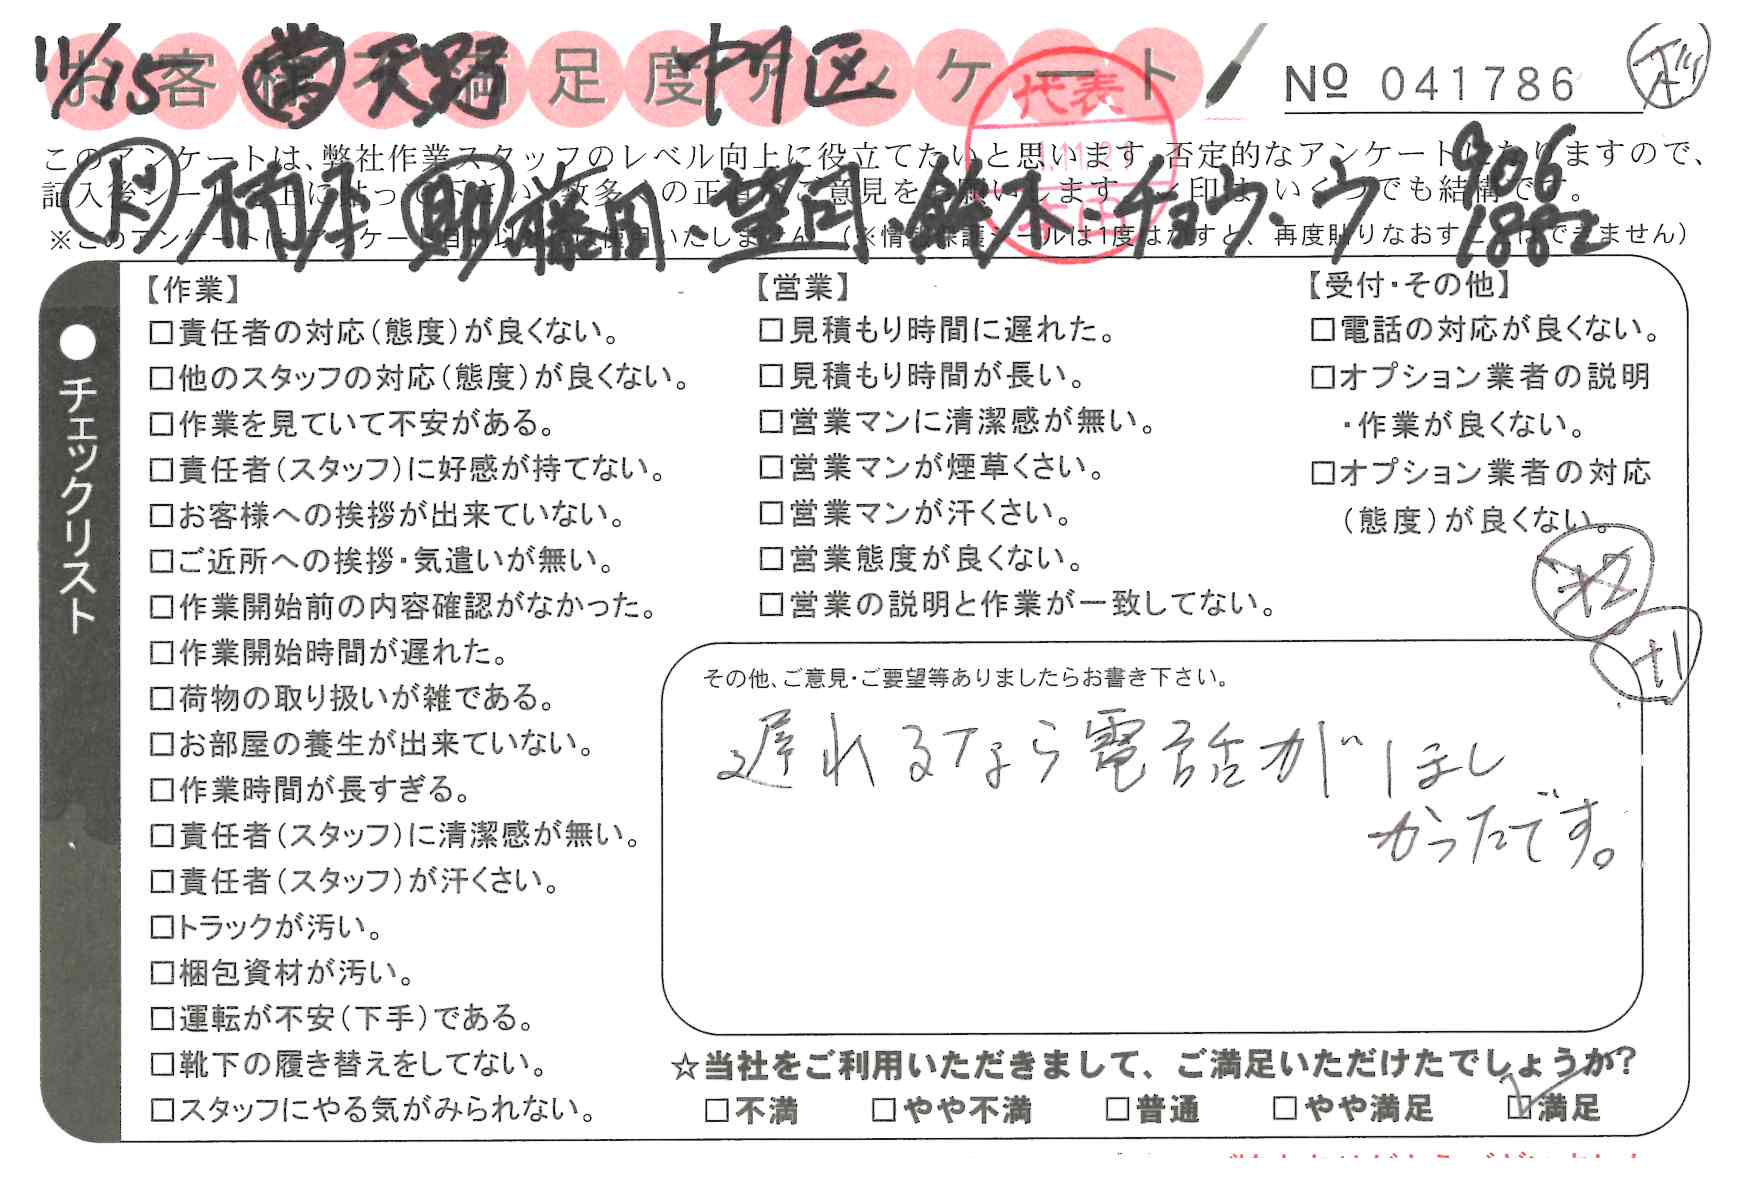 お客様不満足度アンケート
11/15 営 天野 中川区
№ 041786
代表
このアンケートは、弊社作業スタッフのレベル向上に役立てたいと思います。否定的なアンケートになりますので、
記入後シールを上に貼って下さい。数多くの正直なご意見をお願いします。✓印は、いくつでも結構です。
ド 助 藤田・望司・鈴木・チョウ・ウ
906
1882
※このアンケートは、アンケート目的以外に使用いたしません。(※情報保護シールは1度はがすと、再度貼りなおすことはできません)
●チェックリスト
【作業】
□責任者の対応(態度)が良くない。
□他のスタッフの対応(態度)が良くない。
□作業を見ていて不安がある。
□責任者(スタッフ)に好感が持てない。
□お客様への挨拶が出来ていない。
□ご近所への挨拶・気遣いが無い。
□作業開始前の内容確認がなかった。
□作業開始時間が遅れた。
□荷物の取り扱いが雑である。
□お部屋の養生が出来ていない。
□作業時間が長すぎる。
□責任者(スタッフ)に清潔感が無い。
□責任者(スタッフ)が汗くさい。
□トラックが汚い。
□梱包資材が汚い。
□運転が不安(下手)である。
□靴下の履き替えをしてない。
□スタッフにやる気がみられない。
【営業】
□見積もり時間に遅れた。
□見積もり時間が長い。
□営業マンに清潔感が無い。
□営業マンが煙草くさい。
□営業マンが汗くさい。
□営業態度が良くない。
□営業の説明と作業が一致してない。
【受付・その他】
□電話の対応が良くない。
□オプション業者の説明
・作業が良くない。
□オプション業者の対応
(態度)が良くない。
+1
その他、ご意見・ご要望等ありましたらお書き下さい。
遅れるなら電話がほし
かったです。
☆当社をご利用いただきまして、ご満足いただけたでしょうか?
□不満 □やや不満 □普通 □やや満足 ☑満足